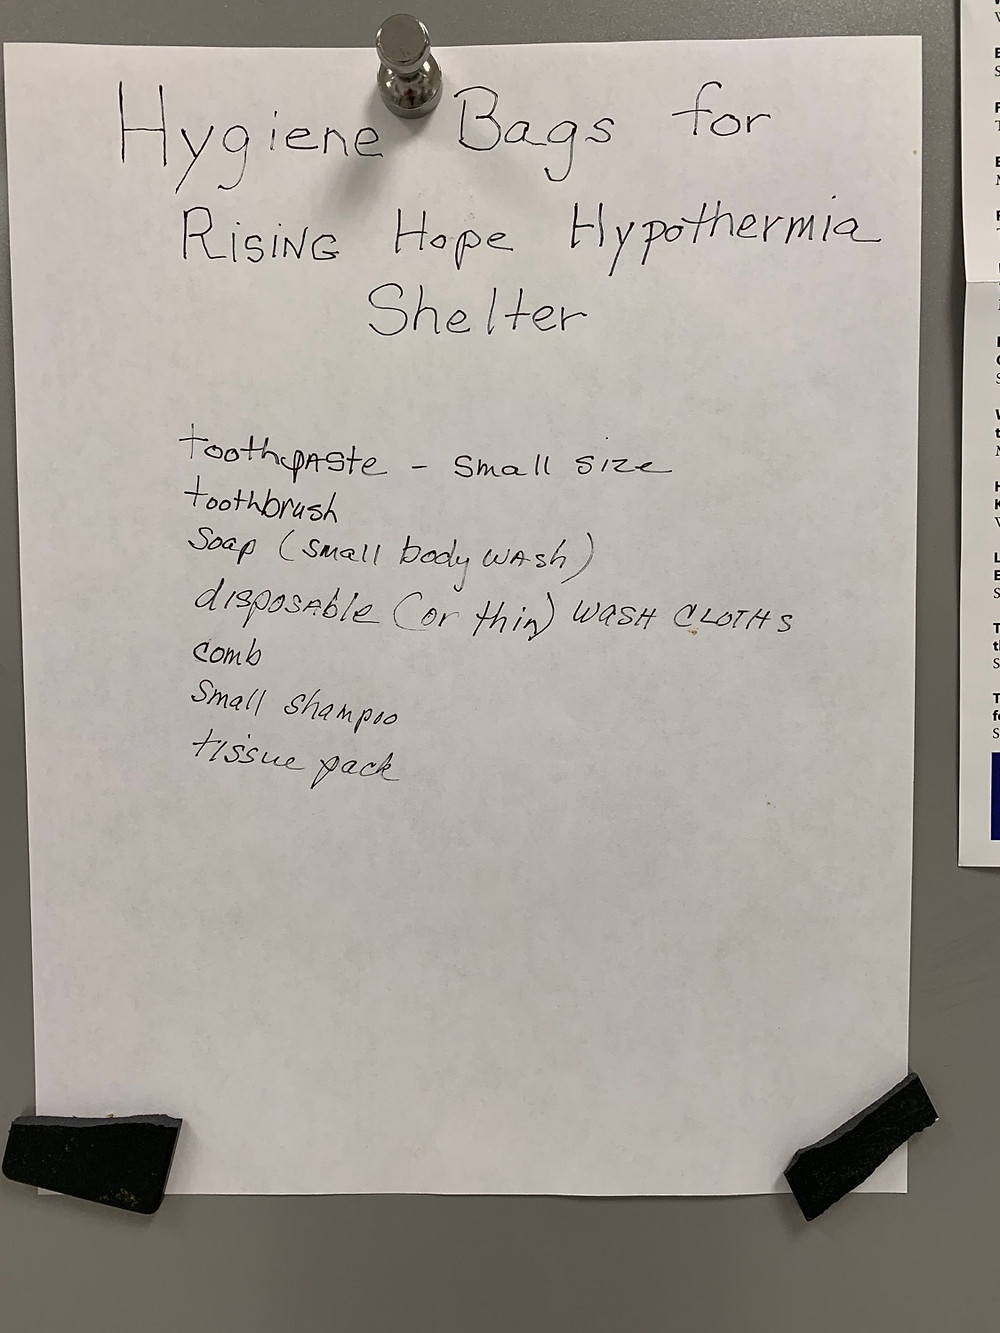 Hygiene Bags for
Rising Hope Hypothermia
Shelter
toothpaste - small size
toothbrush
Soap (small body wash)
disposable (or thin) wash cloths
comb
small shampoo
tissue pack